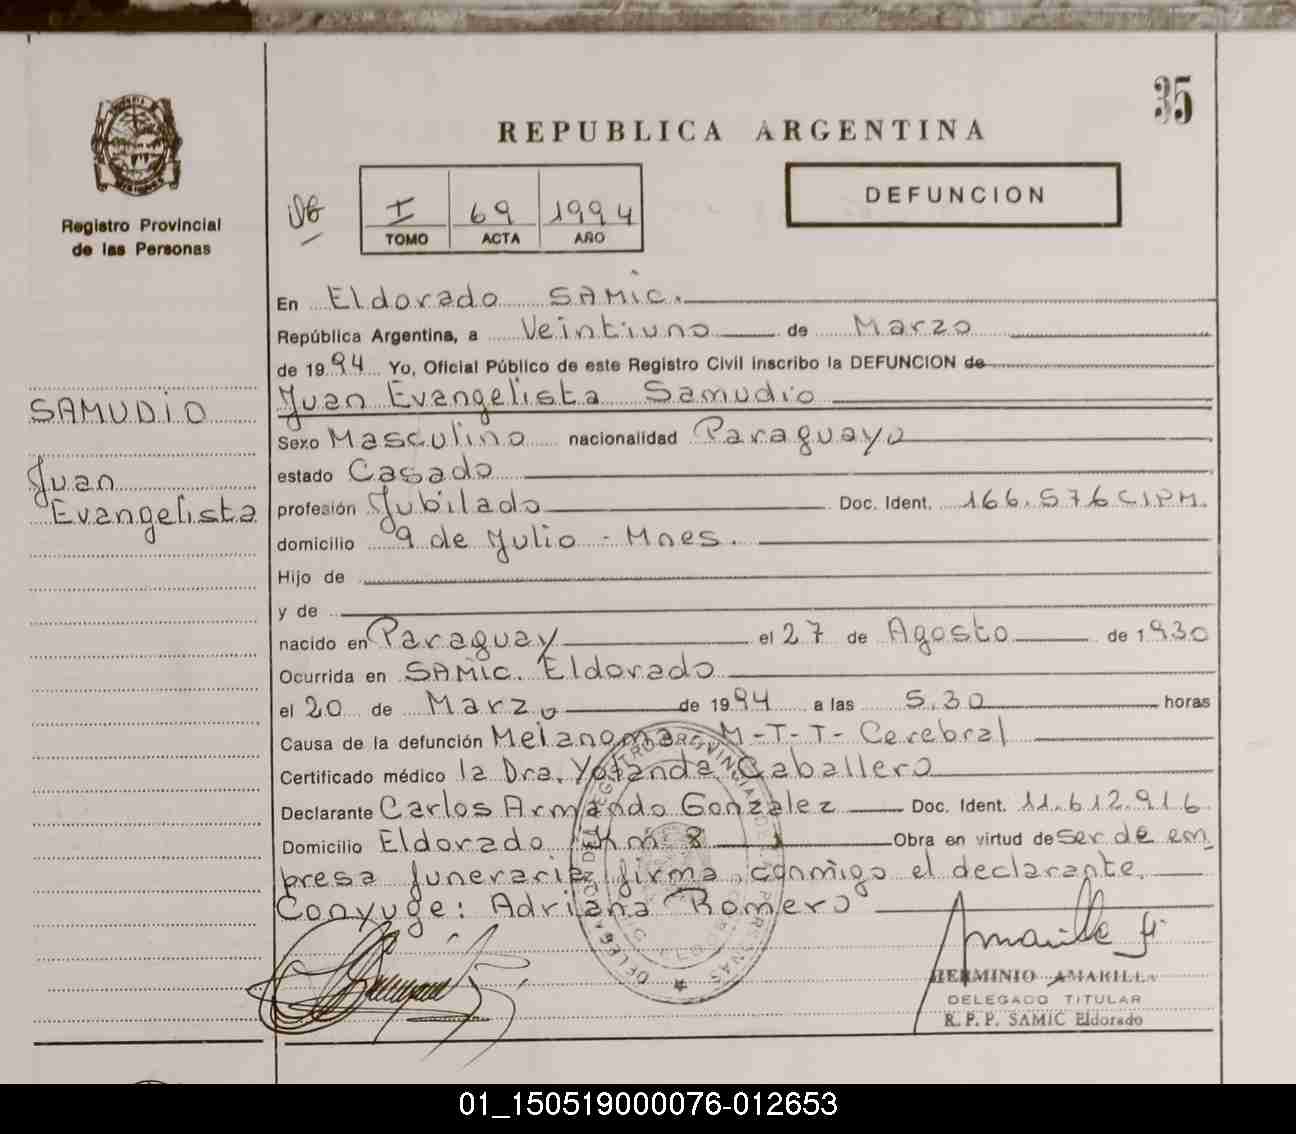 35
REPUBLICA ARGENTINA
Registro Provincial
de las Personas
I 69 1994
TOMO ACTA AÑO
DEFUNCION
En Eldorado SAMIC.
República Argentina, a Veintiuno de Marzo
de 1994 Yo, Oficial Público de este Registro Civil inscribo la DEFUNCION de
SAMUDIO
Juan Evangelista Samudio
Sexo Masculino nacionalidad Paraguayo
Juan
Evangelista
estado Casado
profesión Jubilado Doc. Ident. 166.576 C.I.P.M.
domicilio 9 de Julio - Mnes.
Hijo de
y de
nacido en Paraguay el 27 de Agosto de 1930
Ocurrida en SAMIC. Eldorado
el 20 de Marzo de 1994 a las 5.30 horas
Causa de la defunción Melanoma M-T-T- Cerebral
Certificado médico la Dra. Yolanda Caballero
Declarante Carlos Armando Gonzalez Doc. Ident. 11.612.916
Domicilio Eldorado Km 8 Obra en virtud de ser de em
presa funeraria, firma conmigo el declarante.
Conyuge: Adriana Romero
HERMINIO AMARILLA
DELEGADO TITULAR
R. P. P. SAMIC Eldorado
01_150519000076-012653